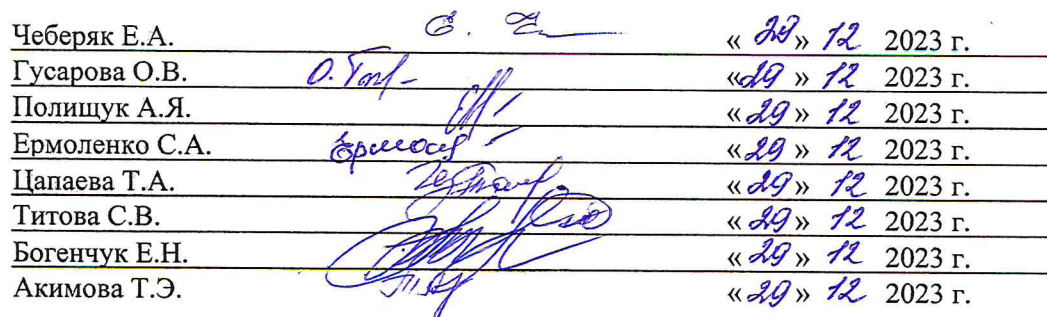 Чеберяк Е.А. « 29 » 12 2023 г.
Гусарова О.В. « 29 » 12 2023 г.
Полищук А.Я. « 29 » 12 2023 г.
Ермоленко С.А. « 29 » 12 2023 г.
Цапаева Т.А. « 29 » 12 2023 г.
Титова С.В. « 29 » 12 2023 г.
Богенчук Е.Н. « 29 » 12 2023 г.
Акимова Т.Э. « 29 » 12 2023 г.